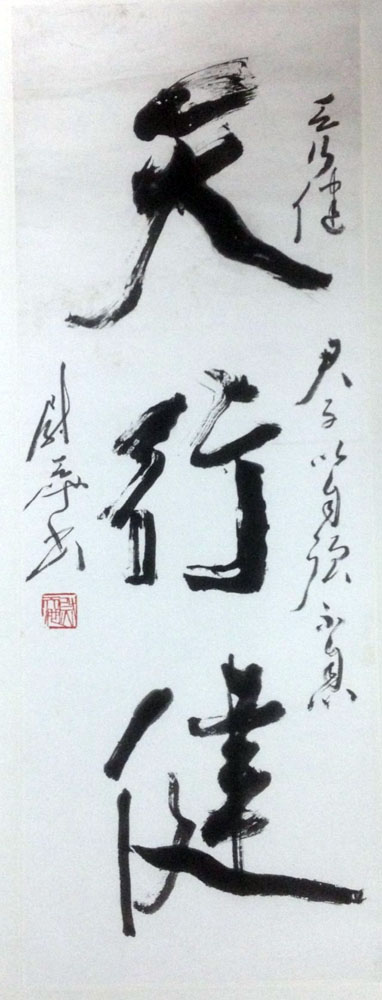 天行健
天行健
君子以自强不息
尉天池书